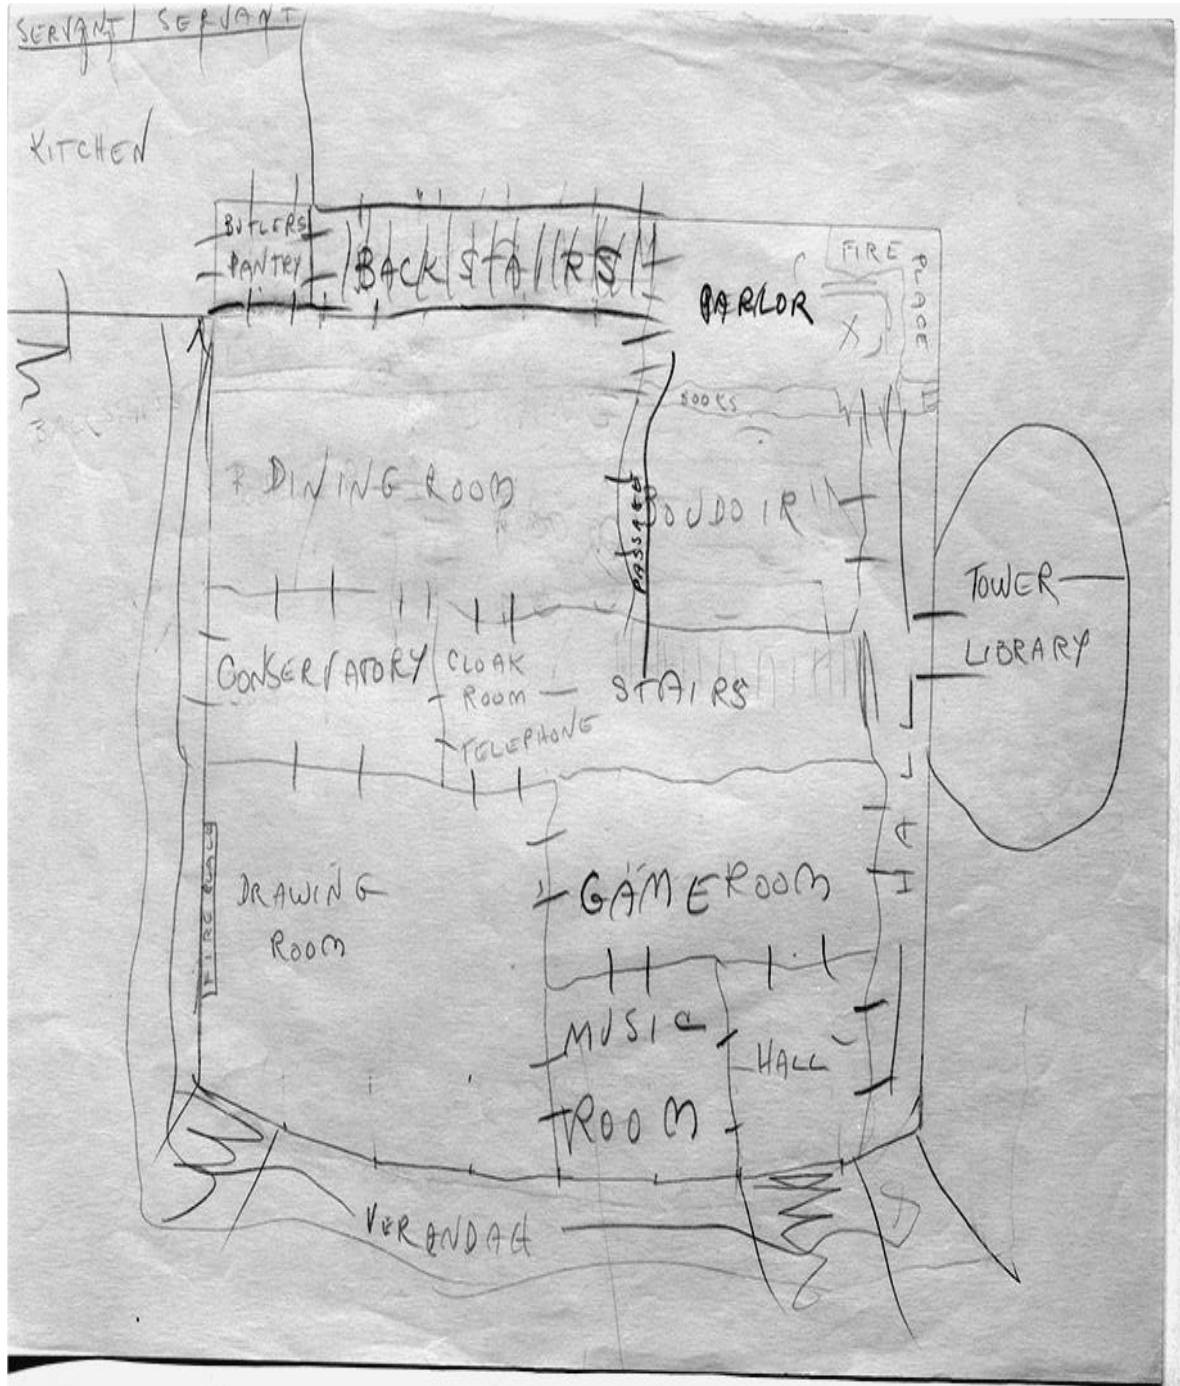 SERVANT/ SERVANT
KITCHEN
BUTLERS
PANTRY
BACK STAIRS
PARLOR
FIRE
PLACE
X
BOOKS
DINING ROOM
PASSAGE
BOUDOIR
TOWER
LIBRARY
CONSERVATORY
CLOAK
ROOM
TELEPHONE
STAIRS
HALL
FIRE PLACE
DRAWING
ROOM
GAMEROOM
MUSIC
ROOM
HALL
VERANDAH